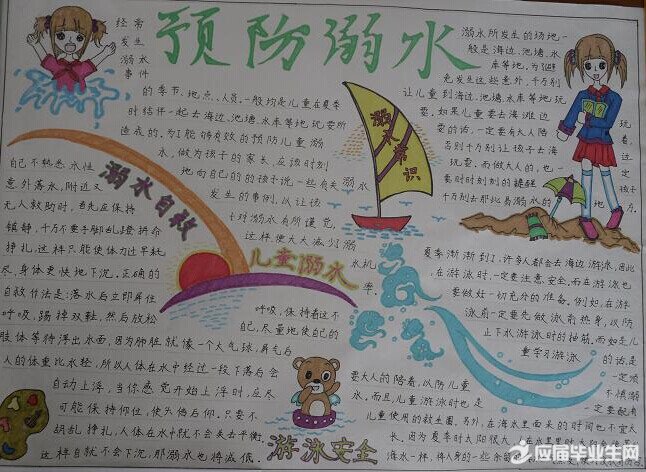 预防溺水
经常
发生
溺水
事件
的季节、地点、人员,一般均是儿童在夏季
时结伴一起去海边、池塘、水库等地玩耍所
造成的。为了能够有效的预防儿童溺
水,做为孩子的家长,应该时刻
地向自己的孩子说一些有关溺水
发生的事例,以让孩
子对溺水有所谨觉,
这样便大大减少溺
水机
率。
溺水所发生的场地一
般是海边、池塘、水
库等地,为避
免发生这些意外,千万别
让儿童到海边、池塘、水库等地玩
耍。如果儿童要去海滩边玩
耍的话,一定要有大人陪着,这
否则千万别让孩子去海边
玩耍。而做大人的,也一定
要时时刻刻的提醒孩子,
千万别去那些易溺水的地方
玩耍
溺水常识
溺水自救
自己不熟悉水性
意外落水,附近又
无人救助时,首先应保持
镇静,千万不要手脚乱蹬拼命
挣扎,这样只能使体力过早耗
尽、身体更快地下沉。正确的
自救作法是:落水后立即屏住
呼吸,踢掉双鞋,然后放松
肢体等待浮出水面,因为肺脏就像一个大气球,屏气后
人的体重比水轻,所以人体在水中经过一段下落后会
自动上浮,当你感觉开始上浮时,应尽
可能保持仰位,使头倘后仰。只要不
胡乱挣扎,人体在水中就不会失去平衡。
这样自就不会下沉,那溺水也将减低。
儿童溺水
呼吸,保持着这不
己,尽量地使自己的
夏季渐渐到了,许多人都会去海边游泳,因此
,在游泳时,一定要注意安全。而在游泳也
要做好一切充分的准备。例如,在游
泳前一定要先做泳前热身,以防
止下水游泳时的抽筋,而如是儿
童学习游泳的话,是
一定须
不慎溺
一定要配有
要大人的陪着,以防儿童
水,而且,儿童游泳时也是
儿童使用的救生圈。另外,在海水里面呆的时间也不宜太
长,因为夏季时太阳很大,
海水一样,将人身的一些
游泳安全
应届毕业生网